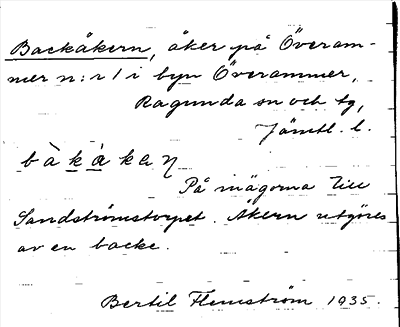 Backåkern, åker på Överam-
mer n:r 1 i byn Överammer,
Ragunda sn och tg,
Jämtl. l.
bàkåkaŋ
På mägorna till
Sandströmstorpet. Åkern utgöres
av en backe.
Bertil Flemström 1935.